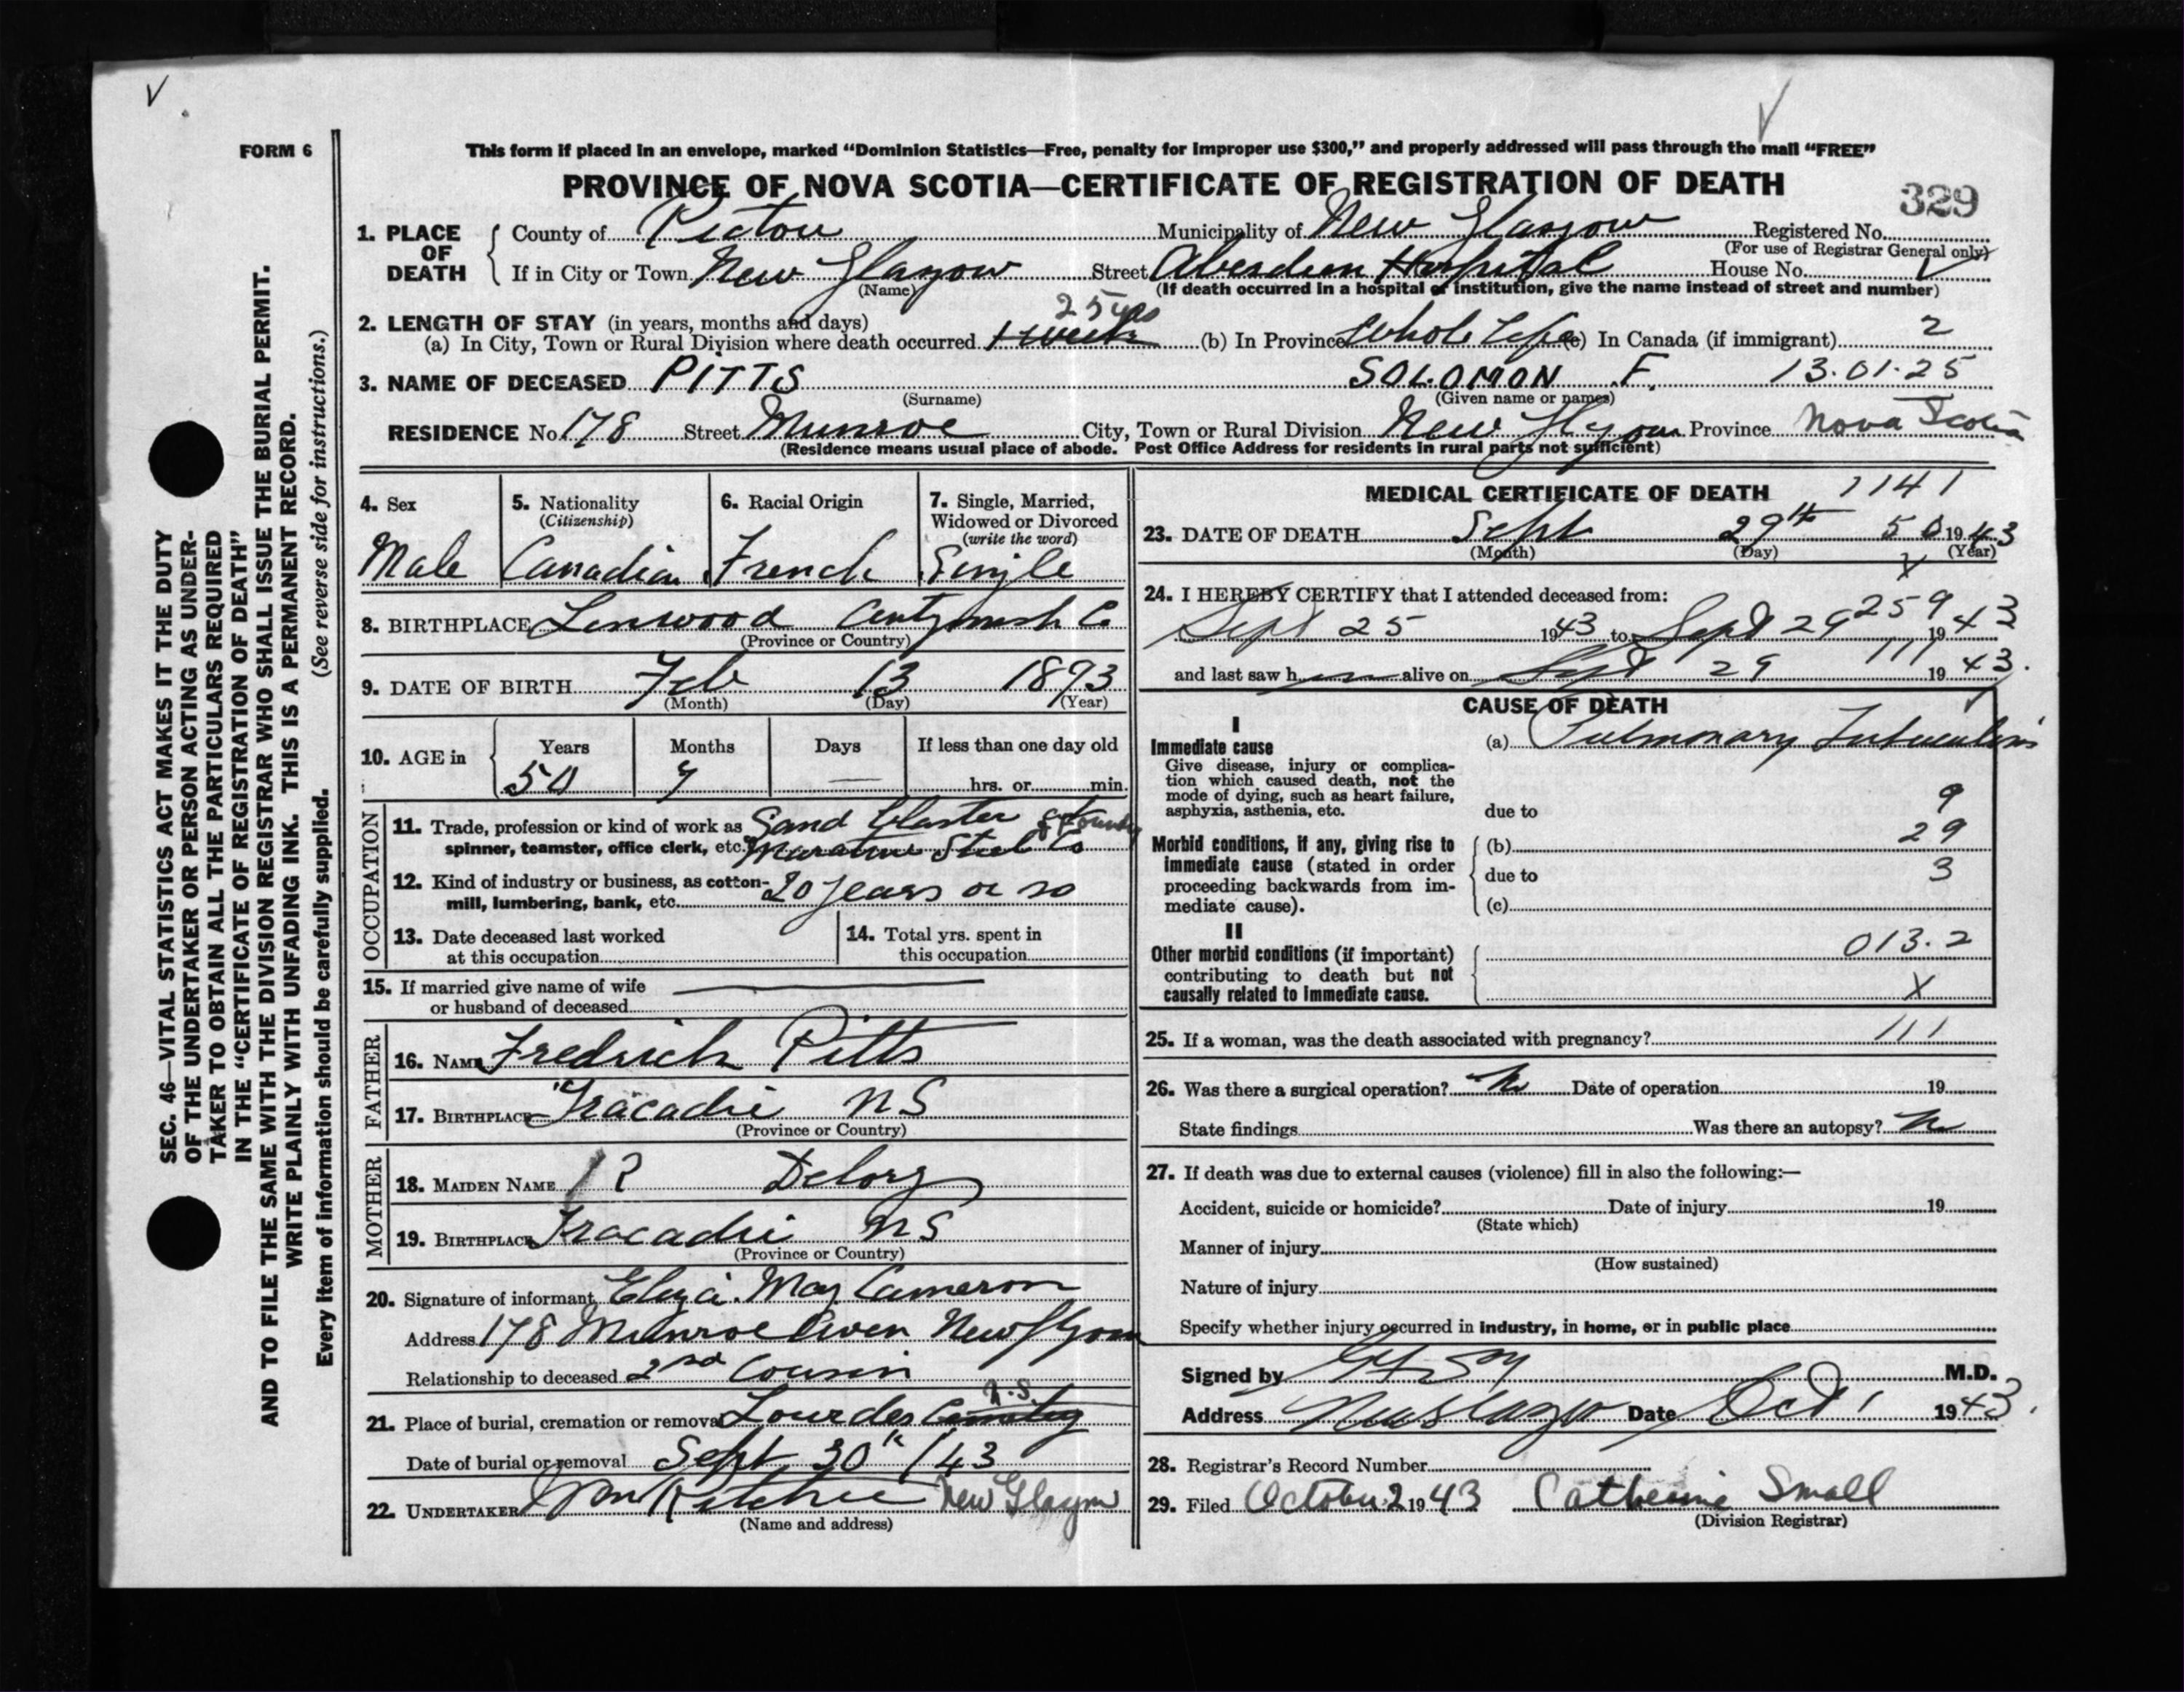 FORM 6
This form if placed in an envelope, marked "Dominion Statistics—Free, penalty for improper use $300," and properly addressed will pass through the mail "FREE"
PROVINCE OF NOVA SCOTIA—CERTIFICATE OF REGISTRATION OF DEATH
329
1. PLACE OF DEATH
County of Pictou Municipality of New Glasgow Registered No.
(For use of Registrar General only)
If in City or Town New Glasgow Street Aberdeen Hospital House No.
(Name) (If death occurred in a hospital or institution, give the name instead of street and number)
2. LENGTH OF STAY (in years, months and days) 25 yrs
(a) In City, Town or Rural Division where death occurred 1 week (b) In Province Whole Life (c) In Canada (if immigrant) 2
3. NAME OF DECEASED PITTS SOLOMON F. 13.01.25
(Surname) (Given name or names)
RESIDENCE No. 178 Street Munroe City, Town or Rural Division New Glasgow Province Nova Scotia
(Residence means usual place of abode. Post Office Address for residents in rural parts not sufficient)
4. Sex
Male
5. Nationality
(Citizenship)
Canadian
6. Racial Origin
French
7. Single, Married,
Widowed or Divorced
(write the word)
Single
8. BIRTHPLACE Linwood Antigonish Co
(Province or Country)
9. DATE OF BIRTH Feb 13 1893
(Month) (Day) (Year)
10. AGE in
Years Months Days If less than one day old
50 7 — hrs. or min.
OCCUPATION
11. Trade, profession or kind of work as Sand Blaster at
spinner, teamster, office clerk, etc. Maratime Steel Co
12. Kind of industry or business, as cotton- 20 years or so
mill, lumbering, bank, etc.
13. Date deceased last worked
at this occupation
14. Total yrs. spent in
this occupation
15. If married give name of wife
or husband of deceased
FATHER
16. NAME Fredrick Pitts
17. BIRTHPLACE Tracadie N S
(Province or Country)
MOTHER
18. MAIDEN NAME ? Delorg
19. BIRTHPLACE Tracadie N S
(Province or Country)
20. Signature of informant May Cameron
Address 178 Munroe New Glasgow
Relationship to deceased 2nd Cousin
21. Place of burial, cremation or removal Lourdes Cemetery N.S.
Date of burial or removal Sept 30th /43
22. UNDERTAKER Wm Ritchie New Glasgow
(Name and address)
MEDICAL CERTIFICATE OF DEATH 1141
23. DATE OF DEATH Sept 29th 50 1943
(Month) (Day) (Year)
X
24. I HEREBY CERTIFY that I attended deceased from:
Sept 25 1943 to Sept 29 259 1943
and last saw h alive on Sept 29 111 1943.
CAUSE OF DEATH
I
Immediate cause
Give disease, injury or complica-
tion which caused death, not the
mode of dying, such as heart failure,
asphyxia, asthenia, etc.
(a) Pulmonary Tuberculosis
due to 9
Morbid conditions, if any, giving rise to
immediate cause (stated in order
proceeding backwards from im-
mediate cause).
(b) 29
due to 3
(c)
II
Other morbid conditions (if important)
contributing to death but not
causally related to immediate cause.
013.2
X
25. If a woman, was the death associated with pregnancy? 111
26. Was there a surgical operation? No Date of operation 19
State findings Was there an autopsy? No
27. If death was due to external causes (violence) fill in also the following:—
Accident, suicide or homicide? Date of injury 19
(State which)
Manner of injury
(How sustained)
Nature of injury
Specify whether injury occurred in industry, in home, or in public place
Signed by M.D.
Address New Glasgow Date Oct 1 1943.
28. Registrar's Record Number
29. Filed October 2 1943 Catherine Small
(Division Registrar)
SEC. 46—VITAL STATISTICS ACT MAKES IT THE DUTY
OF THE UNDERTAKER OR PERSON ACTING AS UNDER-
TAKER TO OBTAIN ALL THE PARTICULARS REQUIRED
IN THE "CERTIFICATE OF REGISTRATION OF DEATH"
AND TO FILE THE SAME WITH THE DIVISION REGISTRAR WHO SHALL ISSUE THE BURIAL PERMIT.
WRITE PLAINLY WITH UNFADING INK. THIS IS A PERMANENT RECORD.
Every item of information should be carefully supplied. (See reverse side for instructions.)